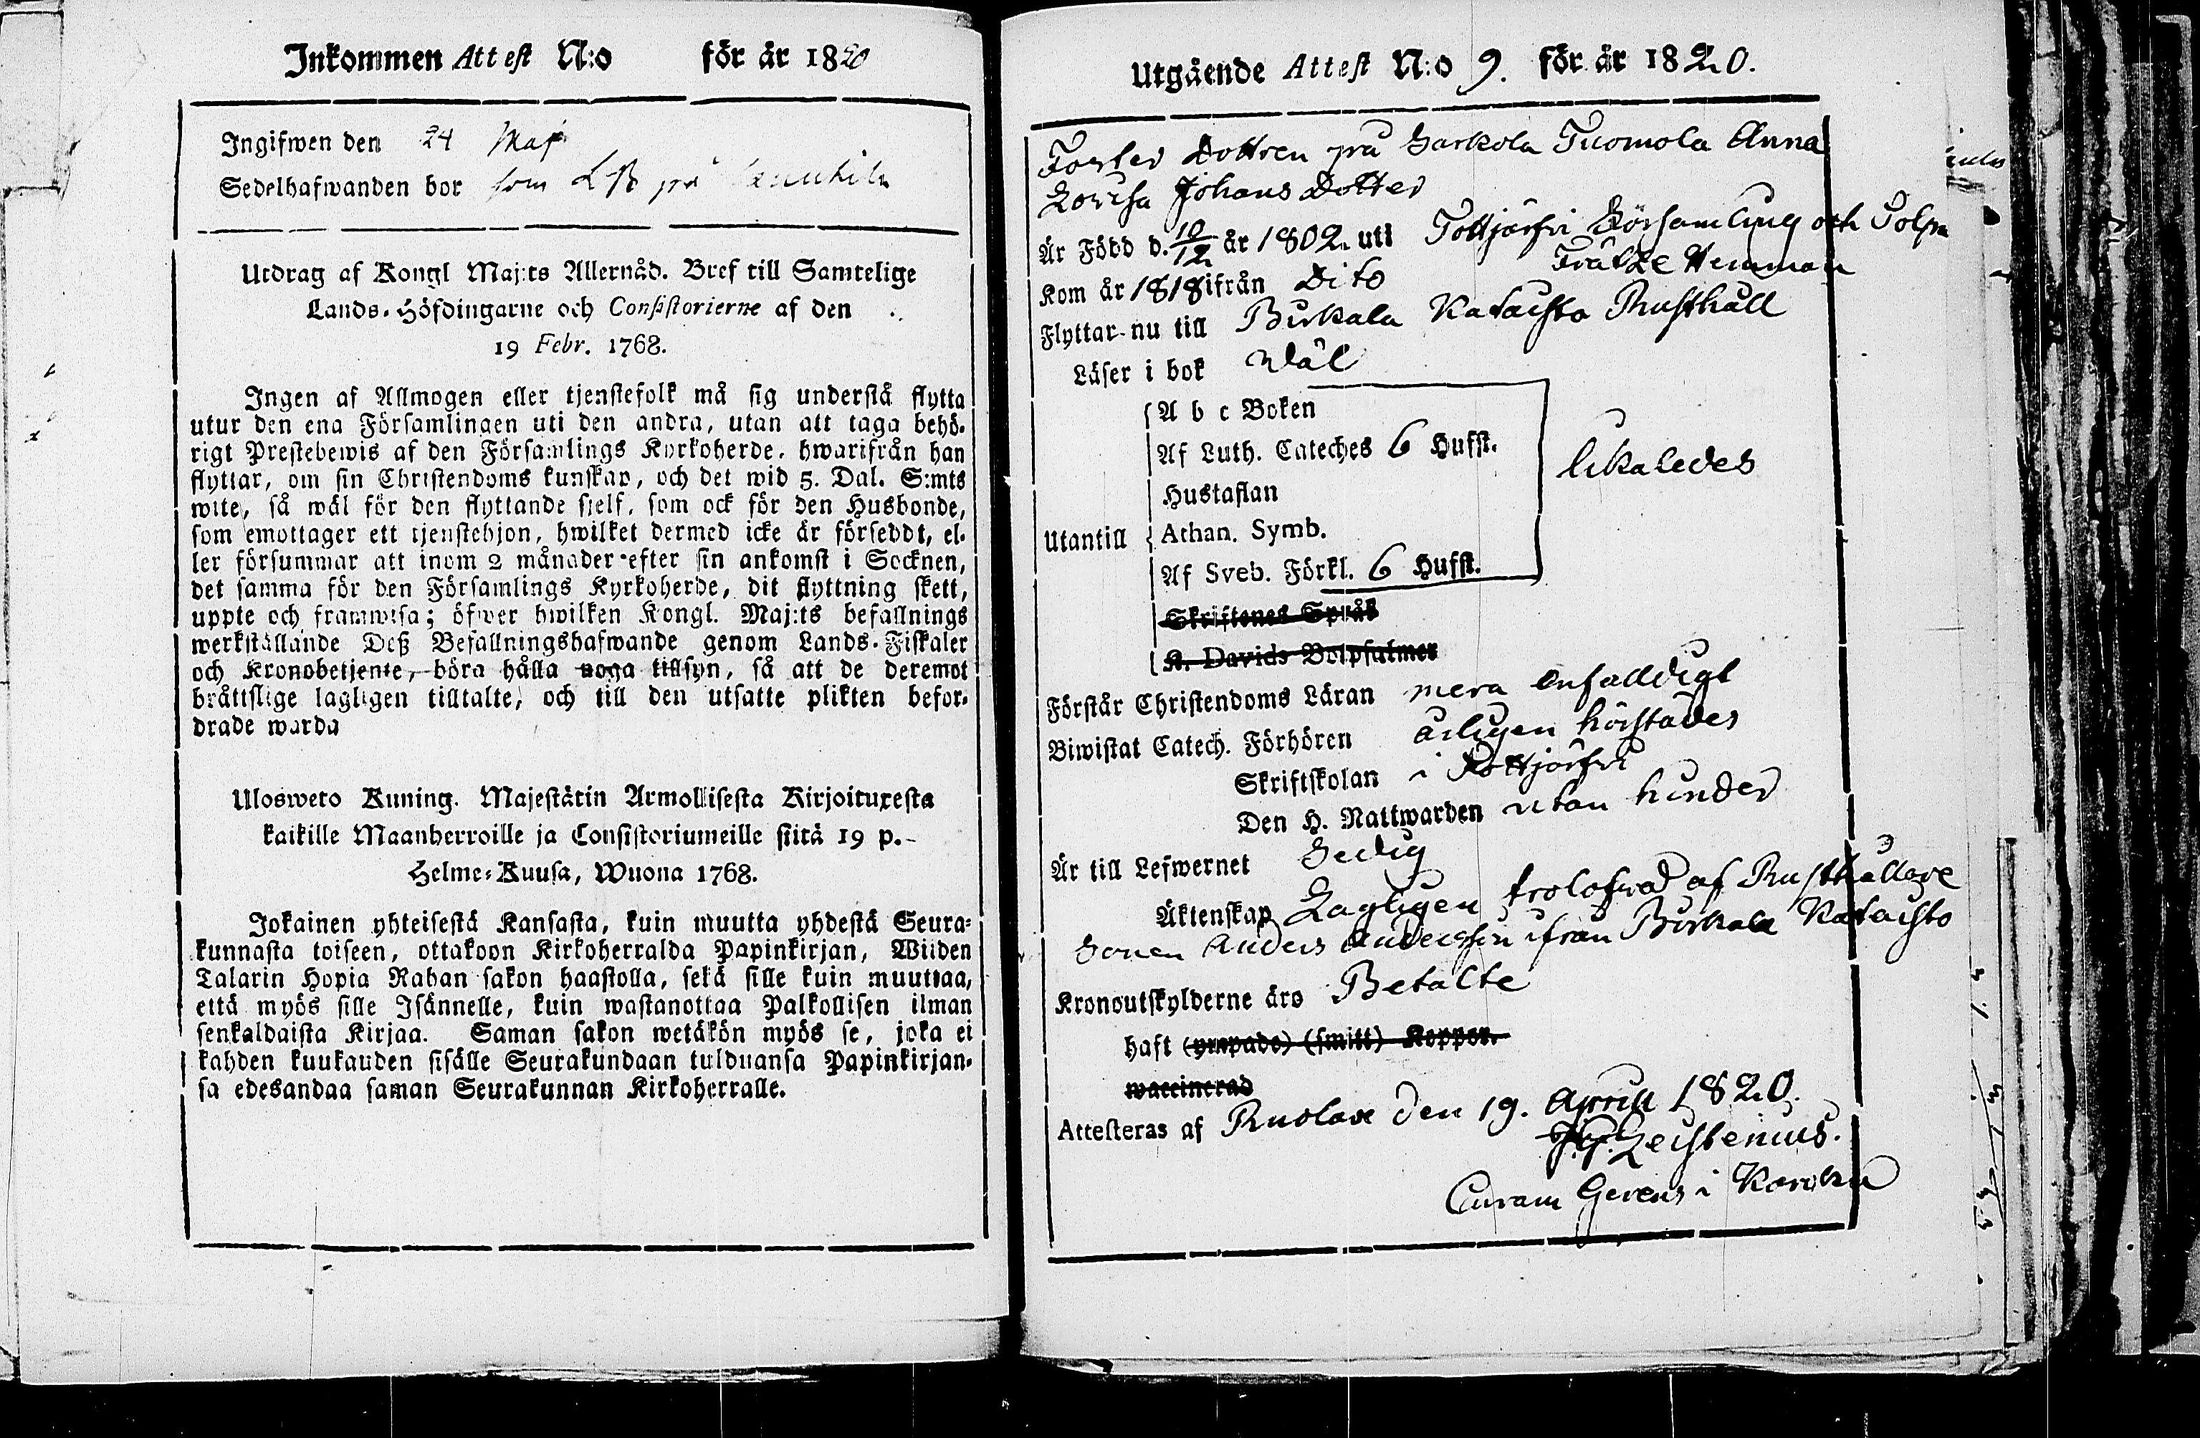 Inkommen Attest N:o för år 1820
Ingifwen den 24 Maji
Sedelhafwanden bor som LB på
Utdrag af Kongl Maj:ts Allernåd. Bref till Samtelige
Lands-Höfdingarne och Consistorierne af den
19 Febr. 1768.
Ingen af Allmogen eller tjenstefolk må sig understå flytta
utur den ena Församlingen uti den andra, utan att taga behö-
rigt Prestebewis af den Församlings Kyrkoherde, hwarifrån han
flyttar, om sin Christendoms kunskap, och det wid 5. Dal. S:mts
wite, så wäl för den flyttande sjelf, som ock för den Husbonde,
som emottager ett tjenstehjon, hwilket dermed icke är förseddt, el-
ler försummar att inom 2 månader efter sin ankomst i Socknen,
det samma för den Församlings Kyrkoherde, dit flyttning skett,
uppte och framwisa; öfwer hwilken Kongl. Maj:ts befallnings
werkställande Deß Befallningshafwande genom Lands-Fiskaler
och Kronobetjente, böra hålla noga tillsyn, så att de deremot
bråttslige lagligen tilltalte, och till den utsatte plikten befor-
drade warda
Ulosweto Kuning. Majestätin Armollisesta Kirjoituxesta
kaikille Maanherroille ja Consistoriumeille siitä 19 p.
Helme-Kuusa, Wuona 1768.
Jokainen yhteisestä Kansasta, kuin muutta yhdestä Seura-
kunnasta toiseen, ottakoon Kirkoherralda Papinkirjan, Wiiden
Talarin Hopia Rahan sakon haastolla, sekä sille kuin muuttaa,
että myös sille Isännelle, kuin wastanottaa Palkollisen ilman
senkaldaista Kirjaa. Saman sakon wetäkön myös se, joka ei
kahden kuukauden sisälle Seurakundaan tulduansa Papinkirjan-
sa edesandaa saman Seurakunnan Kirkoherralle.
Utgående Attest N:o 9. för år 1820.
Foster Dottren på Sarkola Tuomola Anna
Lovisa Johans Dotter
Är Född d. 10/12 år 1802 uti Tottjärfvi Församling och
Frälse Hemman
Kom år 1818 ifrån Dito
Flyttar nu till Birkala Kataisto Rusthåll
Läser i bok wäl
A b c Boken
Af Luth. Cateches 6 Hufst.
likaledes
Hustaflan
Utantill
Athan. Symb.
Af Sveb. Förkl. 6 Hufst.
Skriftenes Språk
K. Davids Botpsalmer
Förstår Christendoms Läran mera enfalldigt
Biwistat Catech. Förhören årligen härstädes
Skriftskolan i Tottjärfvi
Den H. Nattwarden utan hinder
Är till Lefwernet Sedig
Äktenskap Lagligen trolofwad af Rusthållare
Sonen Anders Andersson ifrån Birkala Kataisto
Kronoutskylderne äro Betalte
haft (ympade) (smitt) Koppor.
waccinerad
Attesteras af Ruolax den 19. April 1820.
Zeistenius.
Curam Gerens i